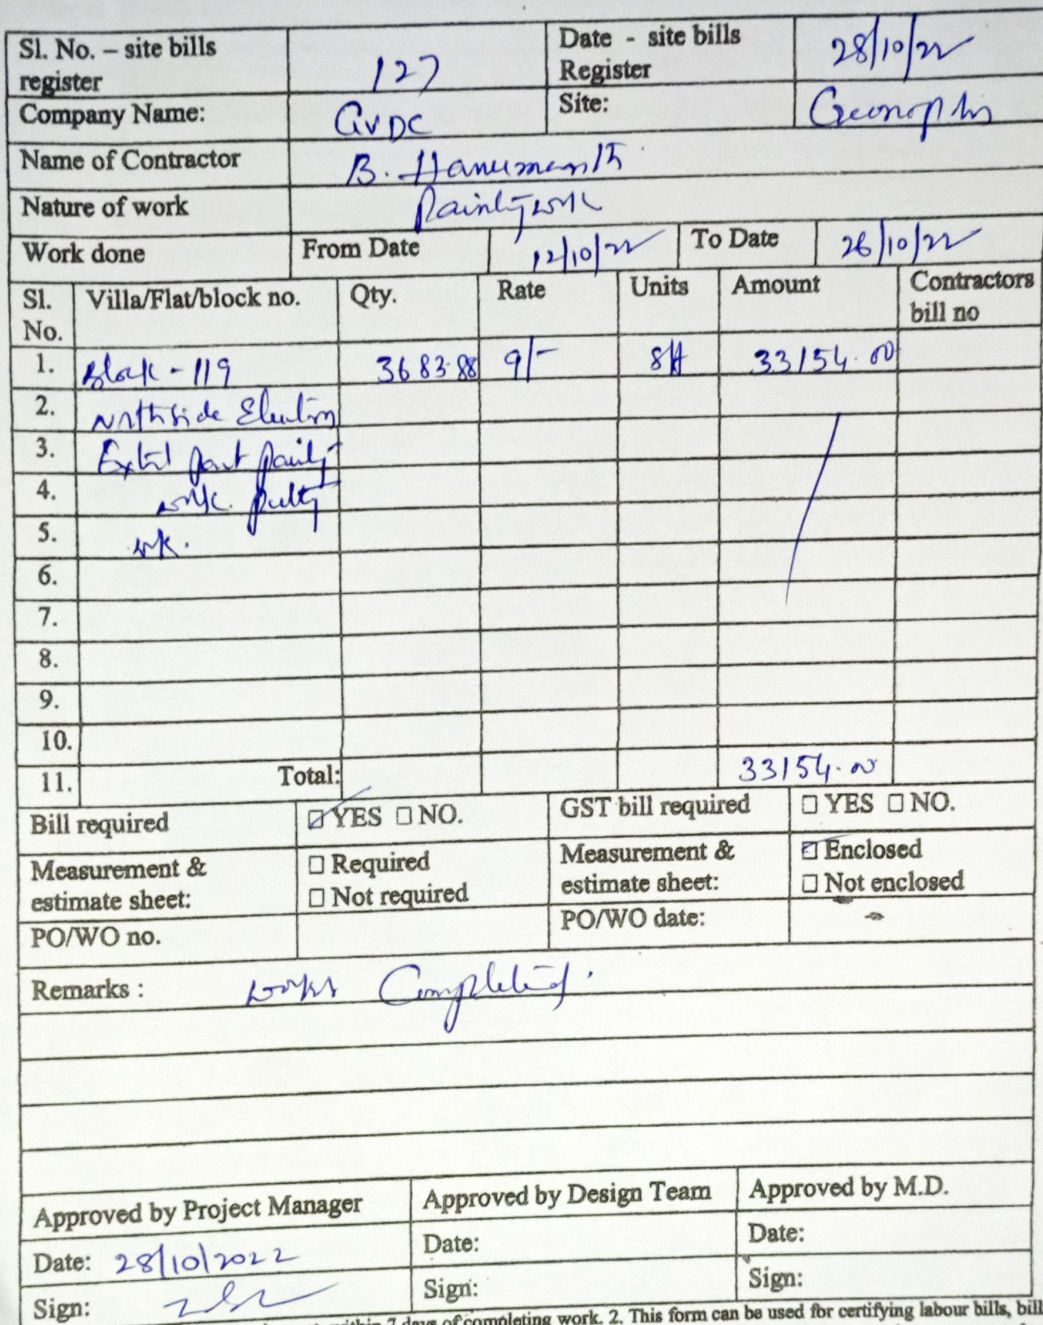 Sl. No. – site bills register 127 Date - site bills Register 28/10/22
Company Name: GVDC Site: Genopolis
Name of Contractor B. Hanumanth
Nature of work Painting work
Work done From Date 12/10/22 To Date 26/10/22
Sl. No. Villa/Flat/block no. Qty. Rate Units Amount Contractors bill no
1. Block - 119 3683.88 9/- sft 33154.00
2. Northside Elevation
3. part painting
4. work. putty
5. wk.
6.
7.
8.
9.
10.
11. Total: 33154.00
Bill required ☑ YES ☐ NO. GST bill required ☐ YES ☐ NO.
Measurement & estimate sheet: ☐ Required ☐ Not required Measurement & estimate sheet: ☑ Enclosed ☐ Not enclosed
PO/WO no. PO/WO date:
Remarks : works Completed.
Approved by Project Manager Approved by Design Team Approved by M.D.
Date: 28/10/2022 Date: Date:
Sign: Sign: Sign:
7 days of completing work. 2. This form can be used for certifying labour bills, bill